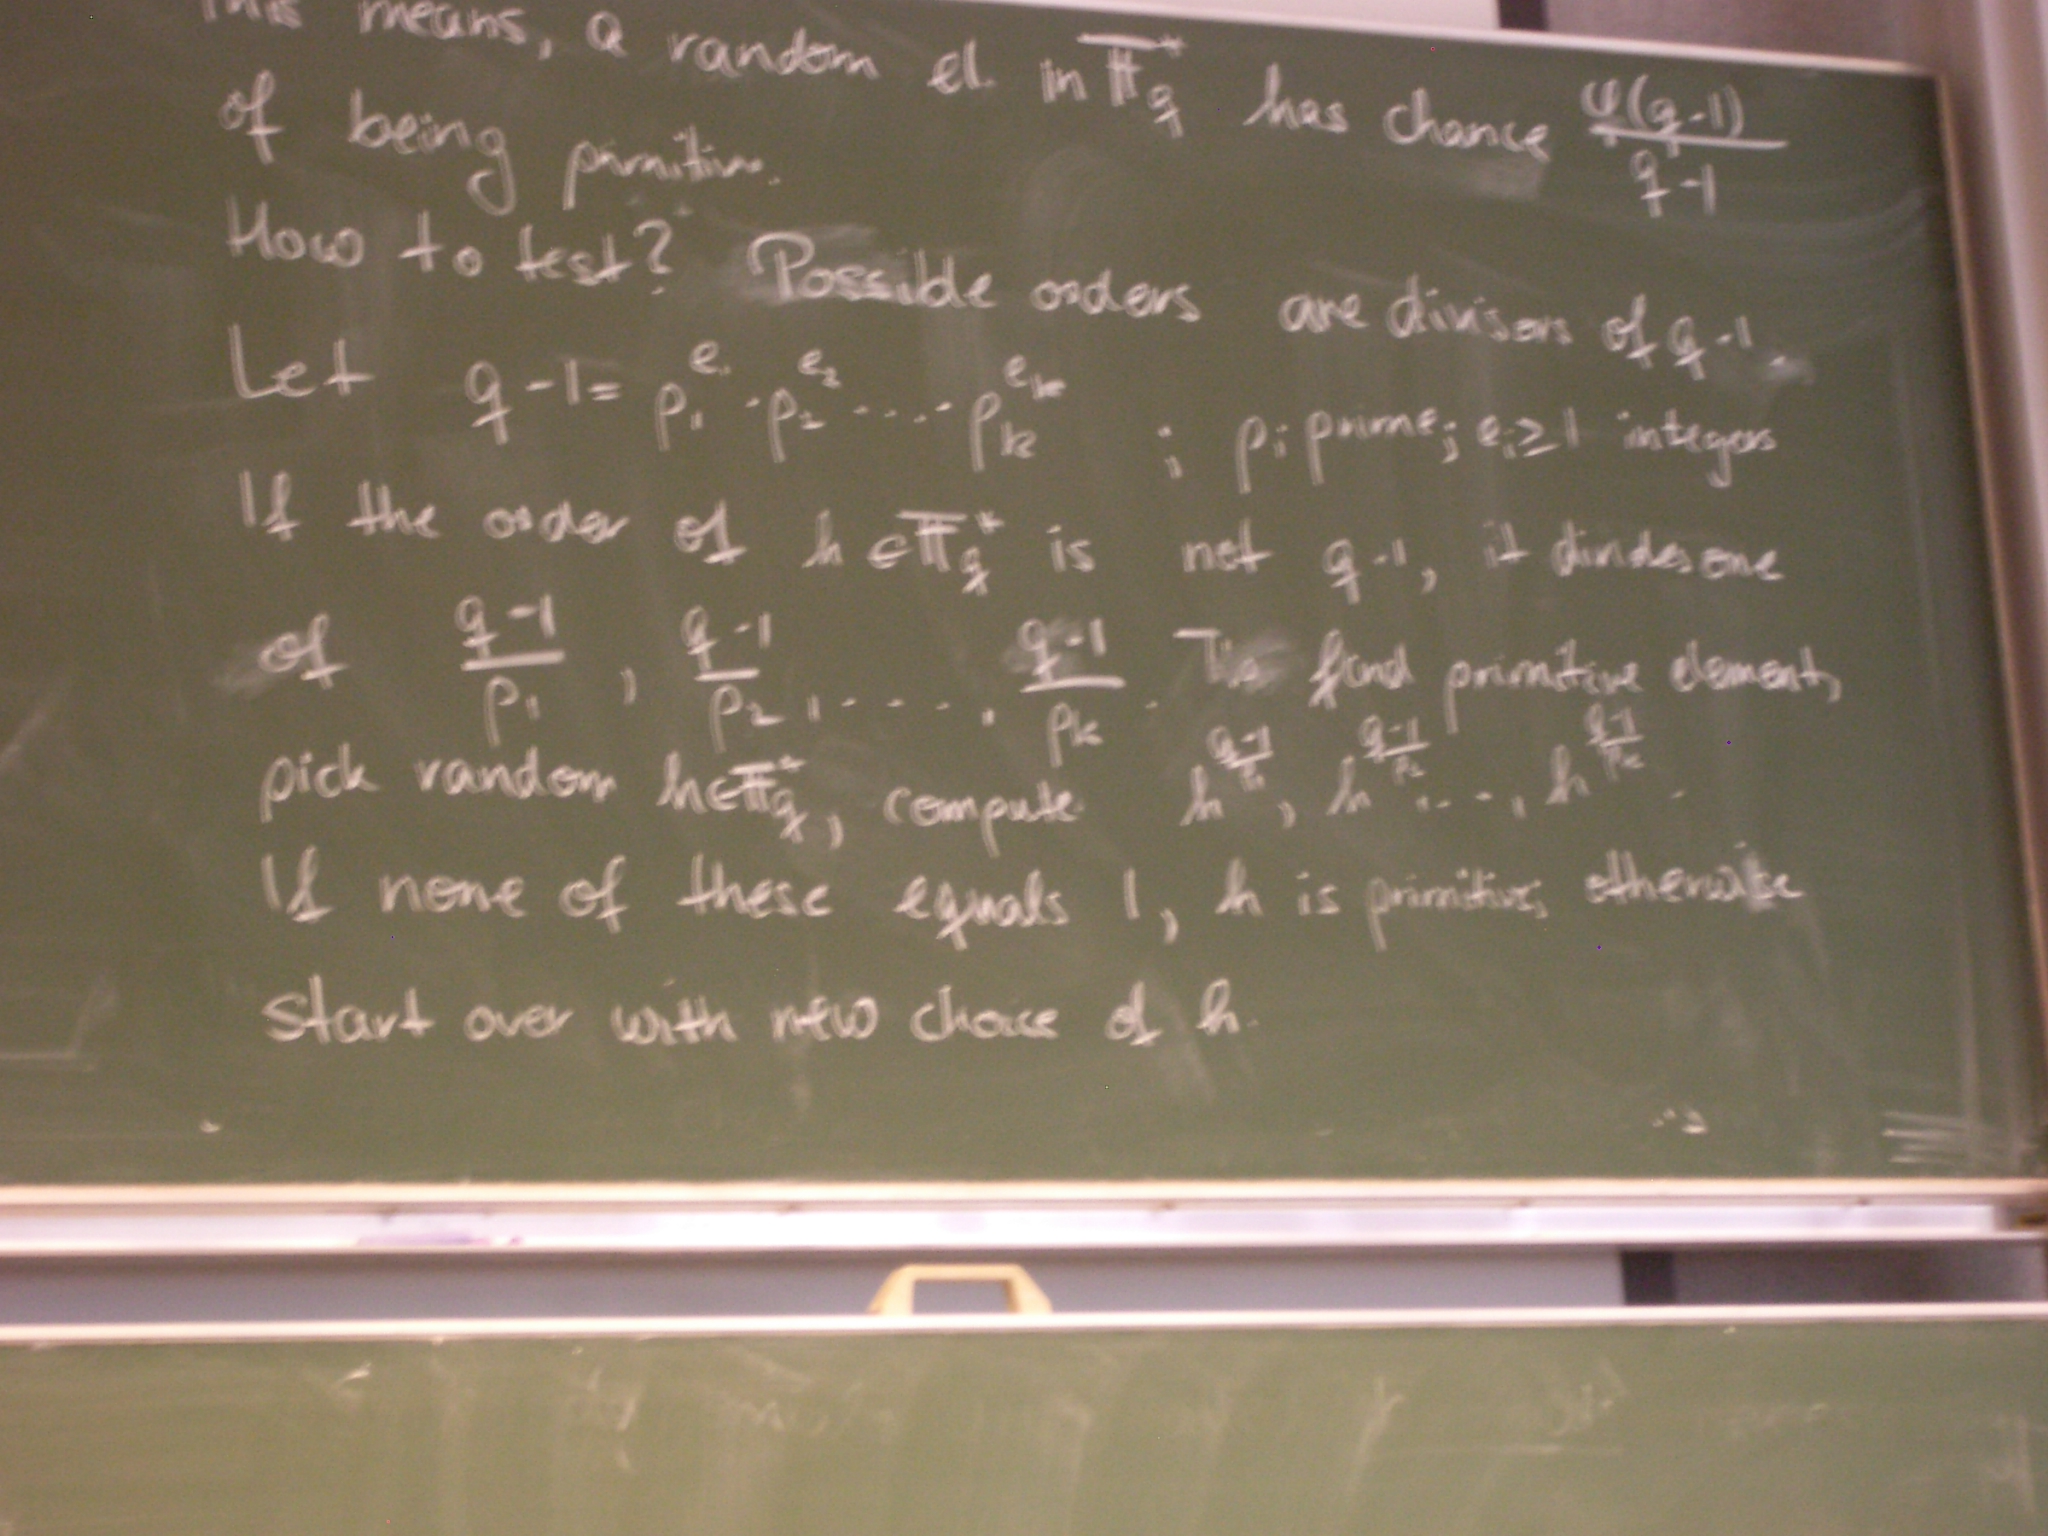 This means, a random el. in 𝔽_q^* has chance φ(q-1)/(q-1)
of being primitive.
How to test? Possible orders are divisors of q-1.
Let q-1 = p_1^{e_1} · p_2^{e_2} · ... · p_k^{e_k} ; p_i prime; e_i ≥ 1 integers
If the order of h ∈ 𝔽_q^* is not q-1, it divides one
of (q-1)/p_1, (q-1)/p_2, ..., (q-1)/p_k. To find primitive element,
pick random h ∈ 𝔽_q^*, compute h^{(q-1)/p_1}, h^{(q-1)/p_2}, ..., h^{(q-1)/p_k}.
If none of these equals 1, h is primitive; otherwise
start over with new choice of h.